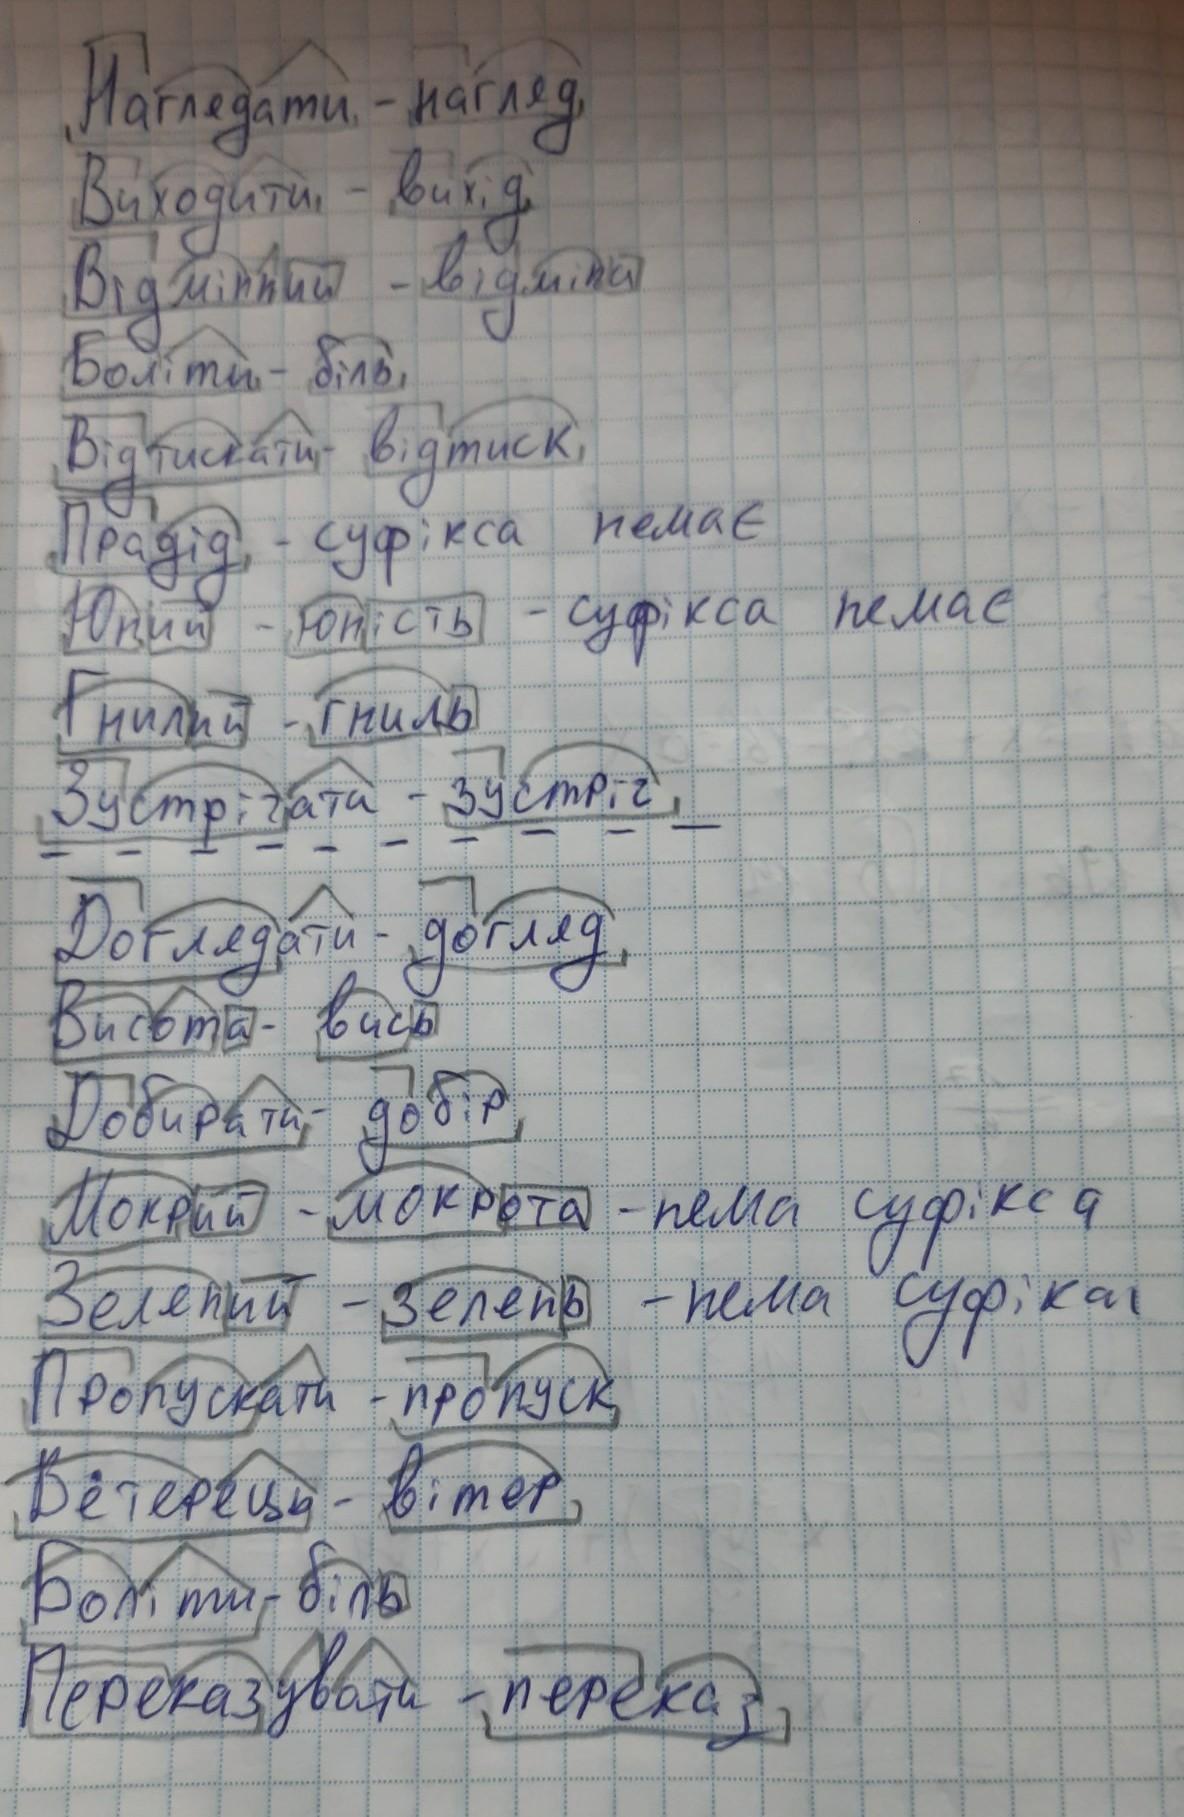 Наглядати - нагляд
Виходити - вихід
Відмінний - відміна
Боліти - біль
Відтискати - відтиск
Прадід - суфікса немає
Юний - юність - суфікса немає
Гнилий - гниль
Зустрічати - зустріч
Доглядати - догляд
Висота - вись
Добирати - добір
Мокрий - мокрота - нема суфікса
Зелений - зелень - нема суфікса
Пропускати - пропуск
Ветерець - вітер
Боліти - біль
Переказувати - переказ